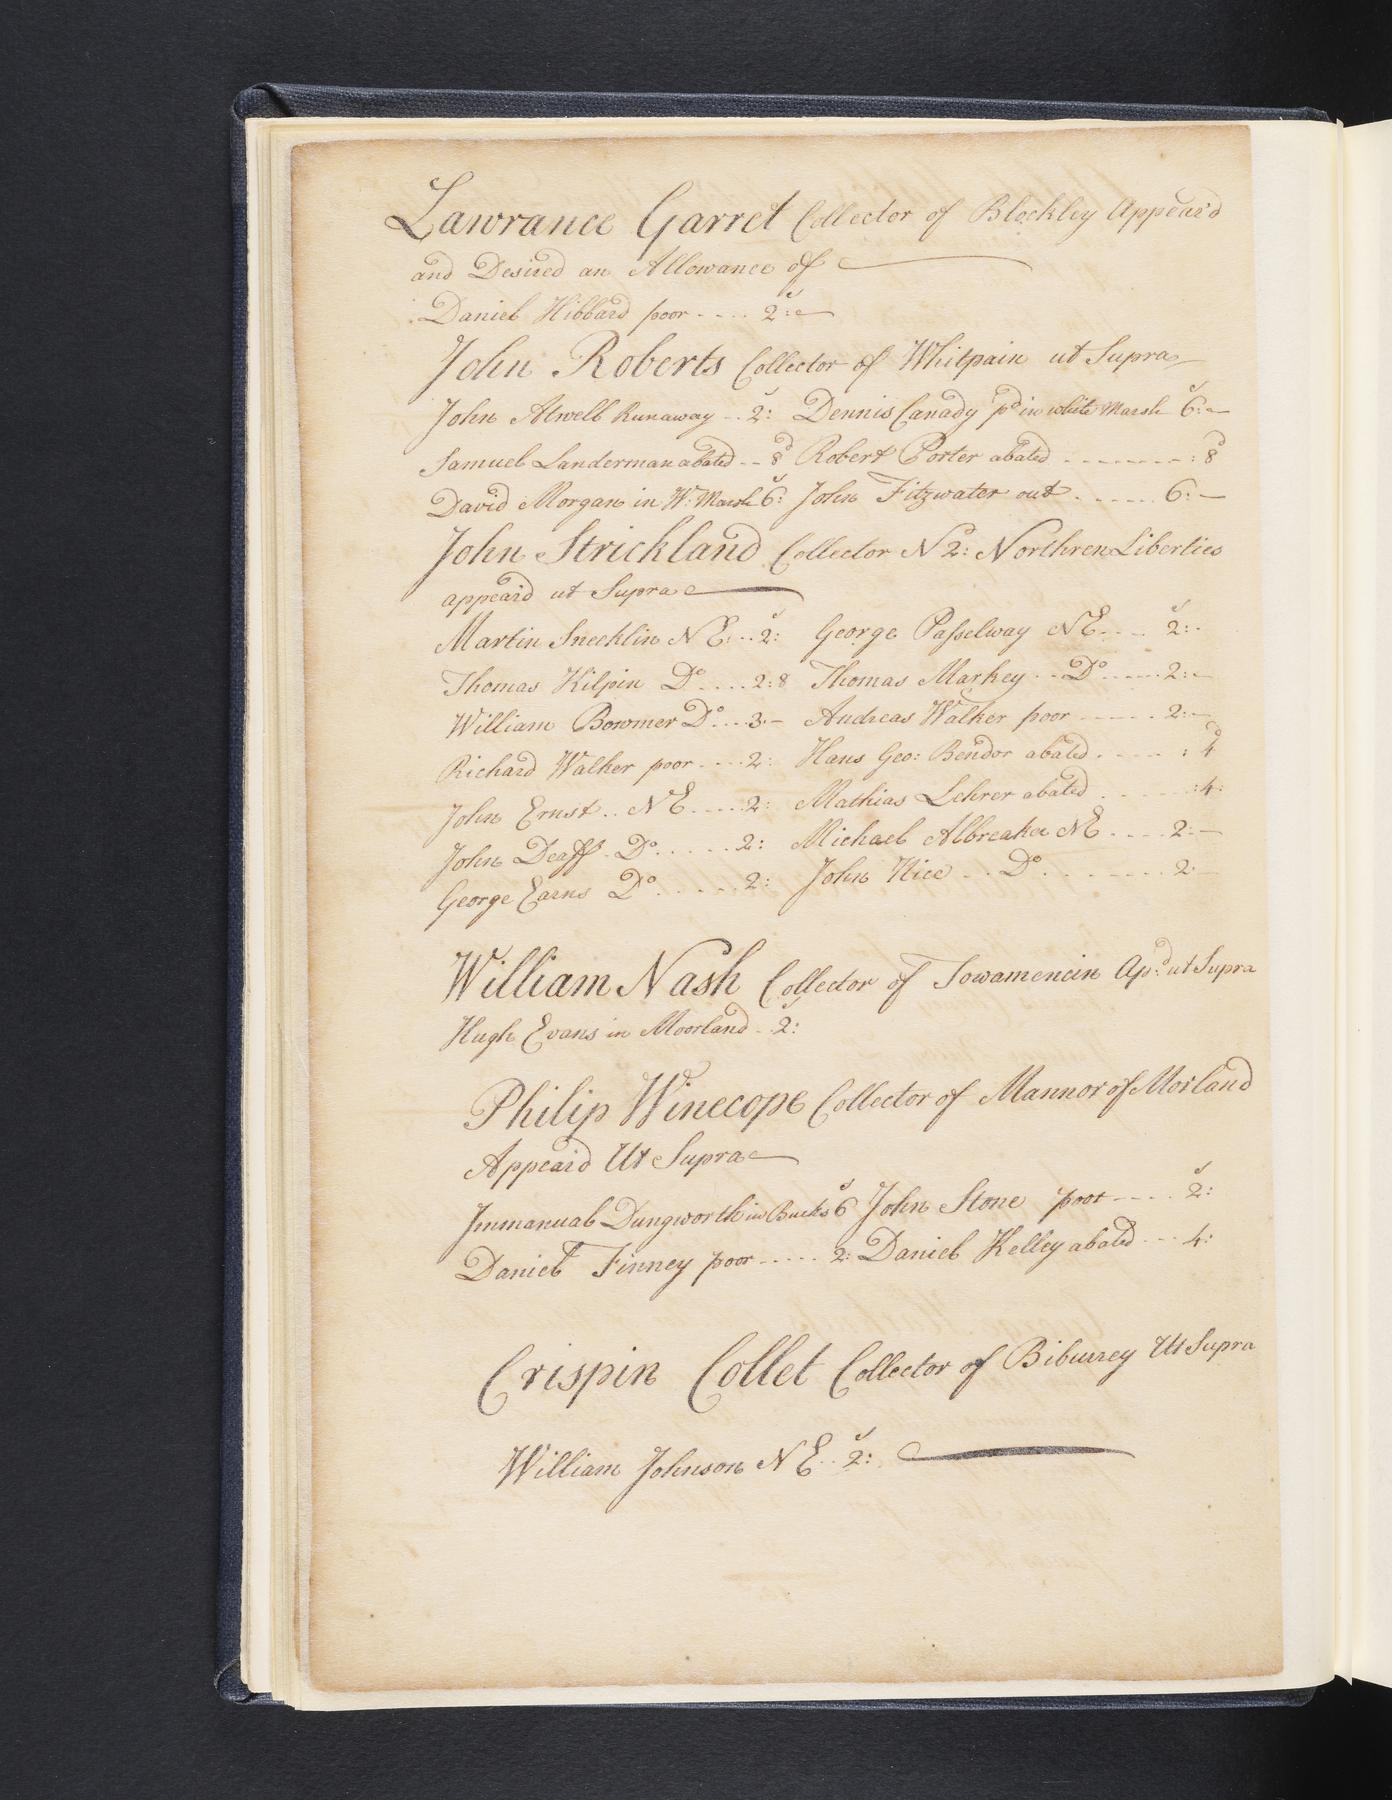 Lawrance Garret Collector of Blockley Appear'd
and Desired an Allowance of
Daniel Hibbard poor .... 2s:
John Roberts Collector of Whitpain ut Supra
John Atwell Runaway .. 2s: Dennis Canady pd in white Marsh 6s:
Samuel Landerman abated -- 8d Robert Porter abated -------- : 8d
David Morgan in W: Marsh 6s: John Fitzwater out ...... 6: -
John Strickland Collector No 2: Northren Liberties
appeard ut Supra
Martin Snecklin NE: .. 2s: George Passelway NE .... 2s: -
Thomas Kilpin Do .... 2:8 Thomas Markey .. Do ..... 2: -
William Bowmer Do ... 3: - Andreas Walker poor ----- 2: -
Richard Walker poor .... 2: Hans Geo: Bendor abated ..... : 4d
John Ernst .. NE .... 2: Mathias Lehrer abated ...... :4:
John Deaff . Do ..... 2: Michael Albreaker NE .... 2: -
George Earns Do ..... 2: John Hice .. Do ....... 2: -
William Nash Collector of Towamencin Apd ut Supra
Hugh Evans in Moorland .. 2s:
Philip Winecope Collector of Mannor of Morland
Appeard Ut Supra
Immanual Dungworth in Bucks 6s John Stone poor ---- 2s:
Daniel Finney poor ..... 2: Daniel Kelley abated ... 4:
Crispin Collet Collector of Biburrey Ut Supra
William Johnson NE .. 2s: